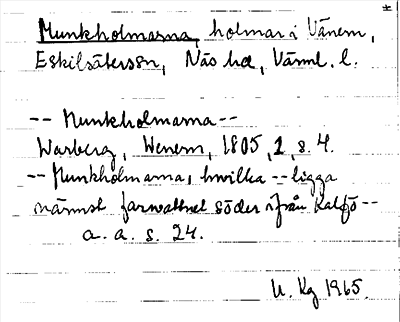 Munkholmarna, holmar i Vänern,
Eskilsäterssn, Näs hd, Värml. l.
-- Munkholmarna --
Warberg, Wenern, 1805, 1, s. 4.
-- Munkholmarna, hwilka -- ligga
närmst farwattnet söder ifrån Kalfö --
a. a. s. 24.
U. Kg 1965.